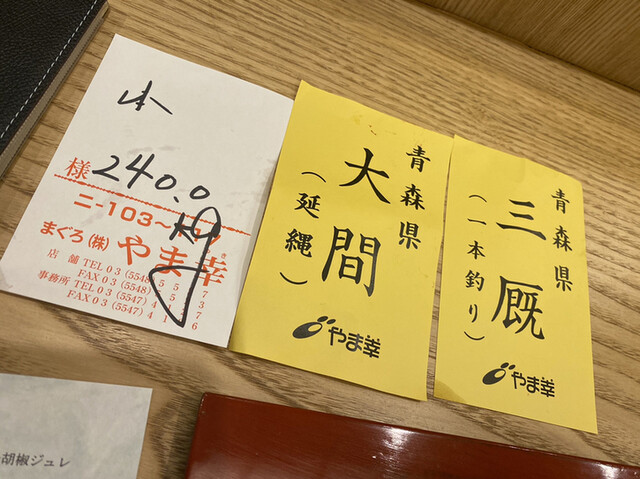 様
240.0
まぐろ(株) やま幸
店舗 TEL 03 (5548)
FAX 03 (5548)
事務所 TEL 03 (5547)
FAX 03 (5547)
青森県
大間
(延縄)
やま幸
青森県
三厩
(一本釣り)
やま幸
胡椒ジュレ